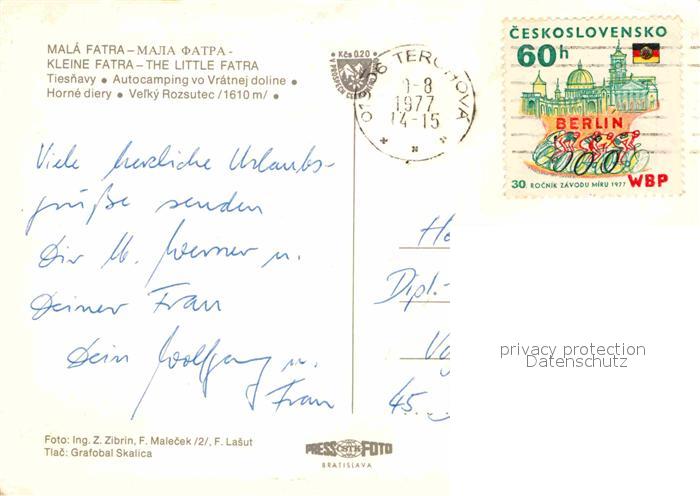 MALÁ FATRA – МАЛА ФАТРА -
KLEINE FATRA – THE LITTLE FATRA
Tiesňavy • Autocamping vo Vrátnej doline •
Horné diery • Veľký Rozsutec /1610 m/ •
Kčs 0.20
TERCHOVÁ
-8
1977
14-15
ČESKOSLOVENSKO
60h
BERLÍN
30. ROČNÍK ZÁVODU MÍRU 1977 WBP
Viele herzliche Urlaubs-
grüße senden
Dir Werner u.
Deiner Frau
Dein Wolfgang u.
Frau
Dipl.-
45
privacy protection
Datenschutz
Foto: Ing. Z. Zibrin, F. Maleček /2/, F. Lašut
Tlač: Grafobal Skalica
PRESS ČSTK FOTO
BRATISLAVA